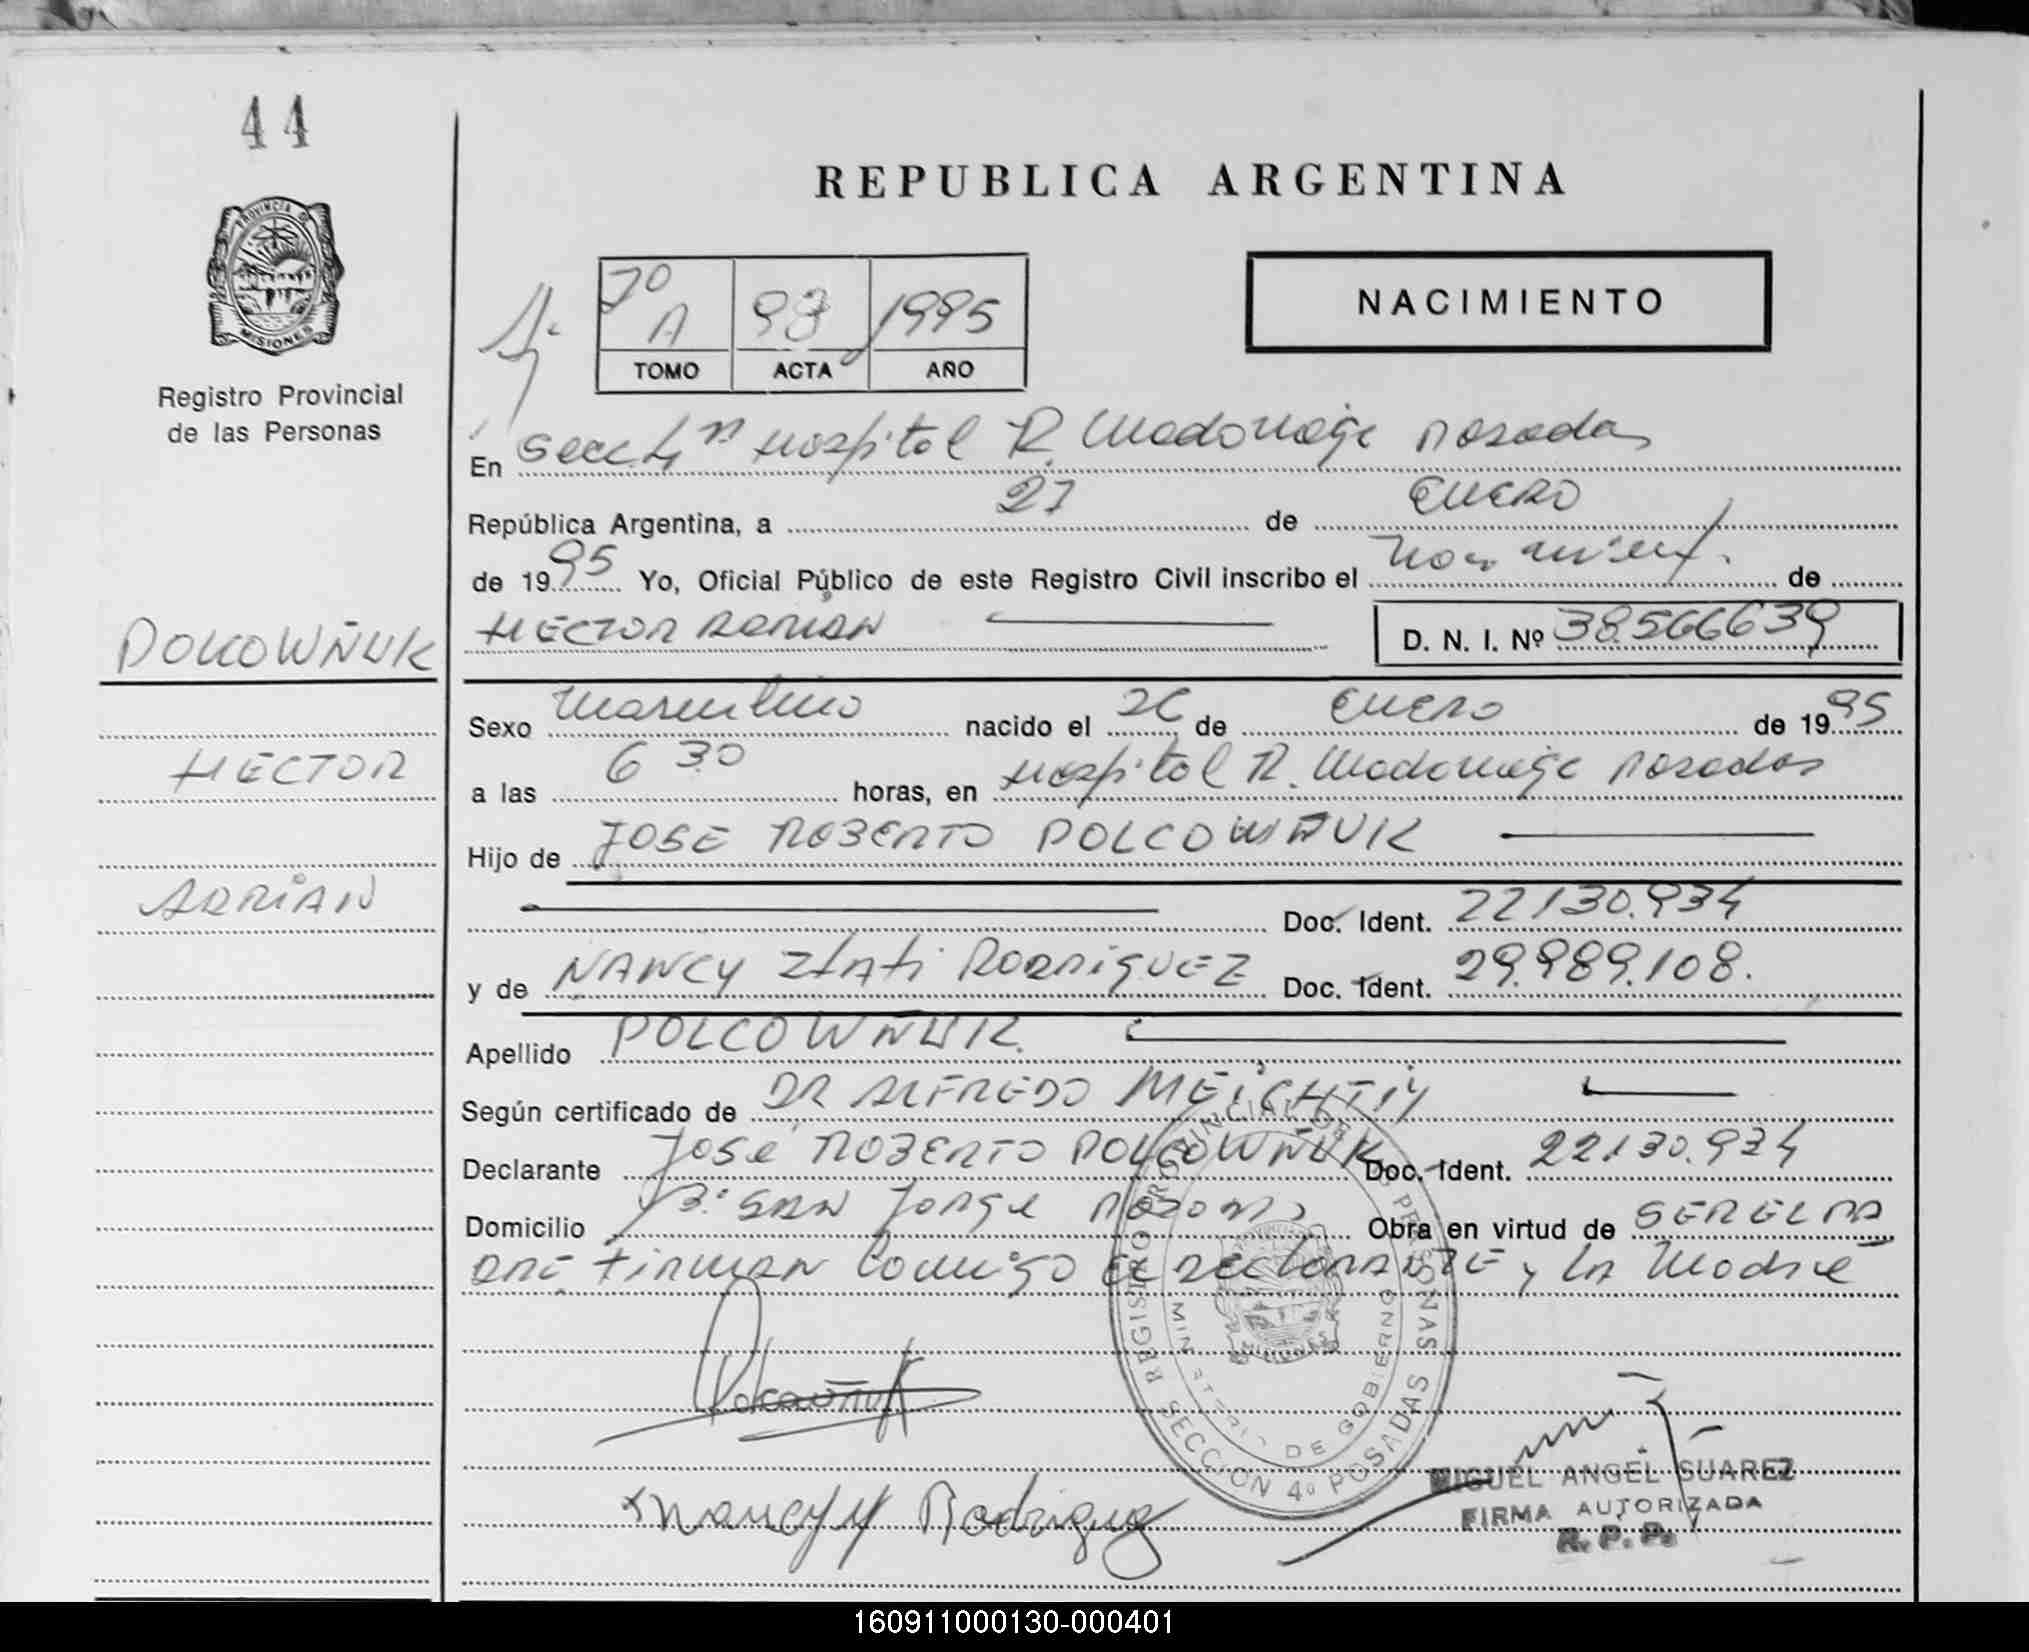 44
REPUBLICA ARGENTINA
PROVINCIA D
MISIONES
Registro Provincial
de las Personas
Tº A 98 1995
TOMO ACTA AÑO
NACIMIENTO
En Secc 4ta Hospital R. Madariaga Posadas
República Argentina, a 27 de ENERO
de 1995 Yo, Oficial Público de este Registro Civil inscribo el nacimient. de
HECTOR ADRIAN D. N. I. Nº 38.566639
POLCOWÑUK
HECTOR
ADRIAN
Sexo Masculino nacido el 26 de ENERO de 1995
a las 6 30 horas, en Hospital R. Madariaga Posadas
Hijo de JOSE ROBERTO POLCOWÑUK
Doc. Ident. 22130.934
y de NANCY RODRIGUEZ Doc. Ident. 29.989.108.
Apellido POLCOWÑUK
Según certificado de DR ALFREDO MEICHTIY
Declarante José ROBERTO POLCOWÑUK Doc. Ident. 22130.934
Domicilio Bº SAN Jorge Obra en virtud de SER EL PA
DRE Firman Comigo El declarANTE y LA Madre
REGISTRO PROVINCIAL DE LAS PERSONAS
MINISTERIO DE GOBIERNO
SECCION 4º POSADAS
Polcowñuk
Nancy Rodriguez
MIGUEL ANGEL SUAREZ
FIRMA AUTORIZADA
R. P. P.
160911000130-000401